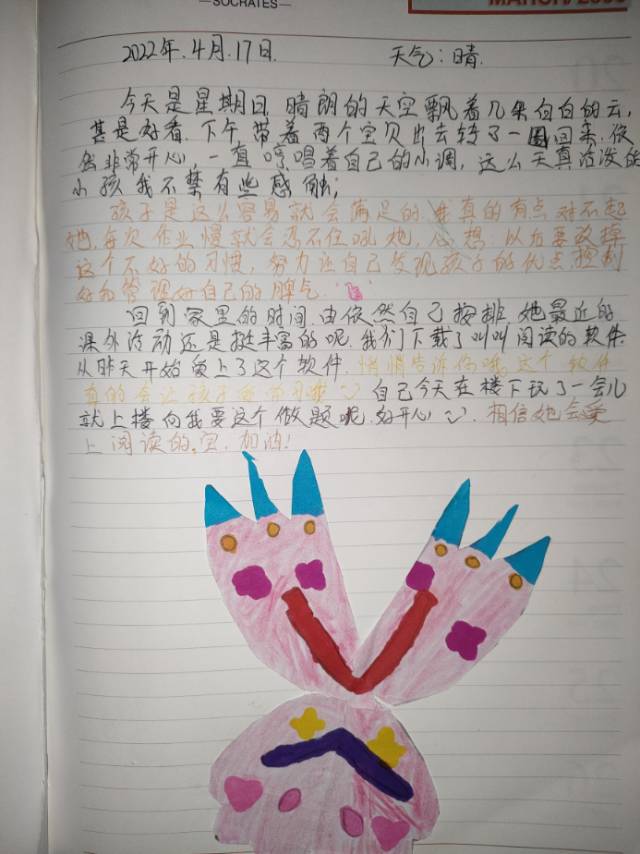 —SOCRATES—
2022年.4月.17日.
天气：晴.
今天是星期日，晴朗的天空飘着几朵白白的云，
甚是好看.下午，带着两个宝贝出去转了一圈回来,依
然非常开心，一直哼唱着自己的小调，这么天真活泼的
小孩我不禁有些感触；
孩子是这么容易就会满足的.我真的有点对不起
她，每次作业慢就会忍不住吼她，心想：以后要改掉
这个不好的习惯，努力让自己发现孩子的优点.控制
好和管理好自己的脾气.
回到家里的时间，由依然自己按排，她最近的
课外活动还是挺丰富的呢.我们下载了叫叫阅读的软件.
从昨天开始负上了这个软件.悄悄告诉你哦，这个软件
真的会让孩子
自己今天在楼下玩了一会儿
就上楼向我要这个做题呢.好开心.相信她会爱
上阅读的.宝.加油！